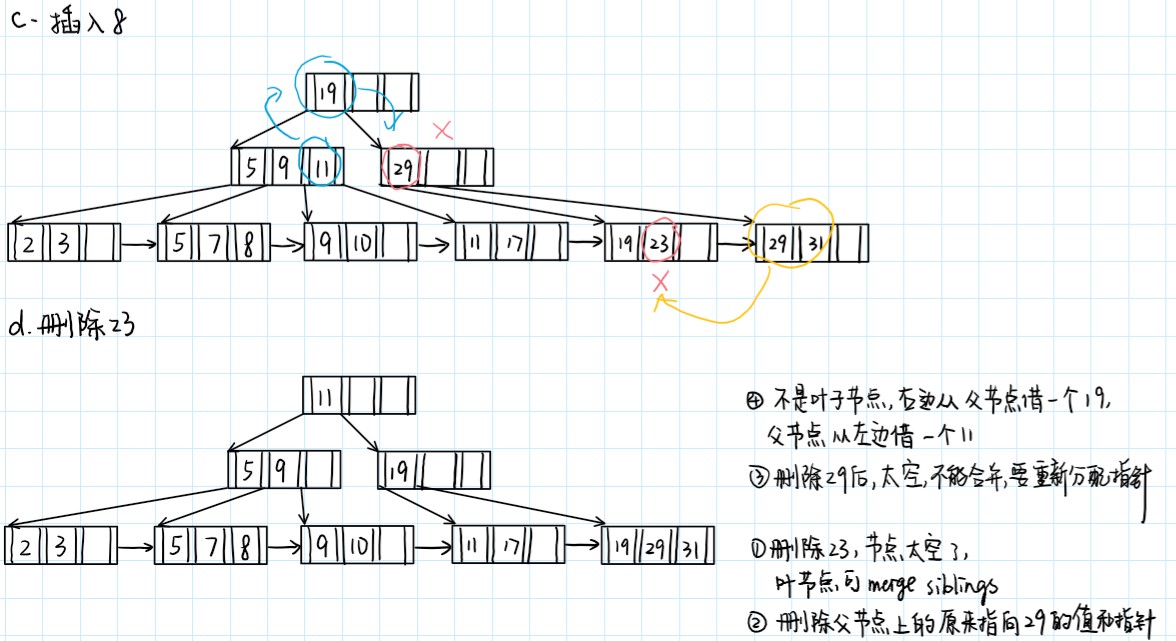 c. 插入8
19
5 9 11
29
2 3
5 7 8
9 10
11 17
19 23
29 31
d. 删除23
11
5 9
19
2 3
5 7 8
9 10
11 17
19 29 31
④ 不是叶子节点,右边从父节点借一个19,
父节点从左边借一个11
③ 删除29后,太空,不能合并,要重新分配指针
① 删除23,节点太空了,
叶节点可merge siblings
② 删除父节点上的原来指向29的值和指针